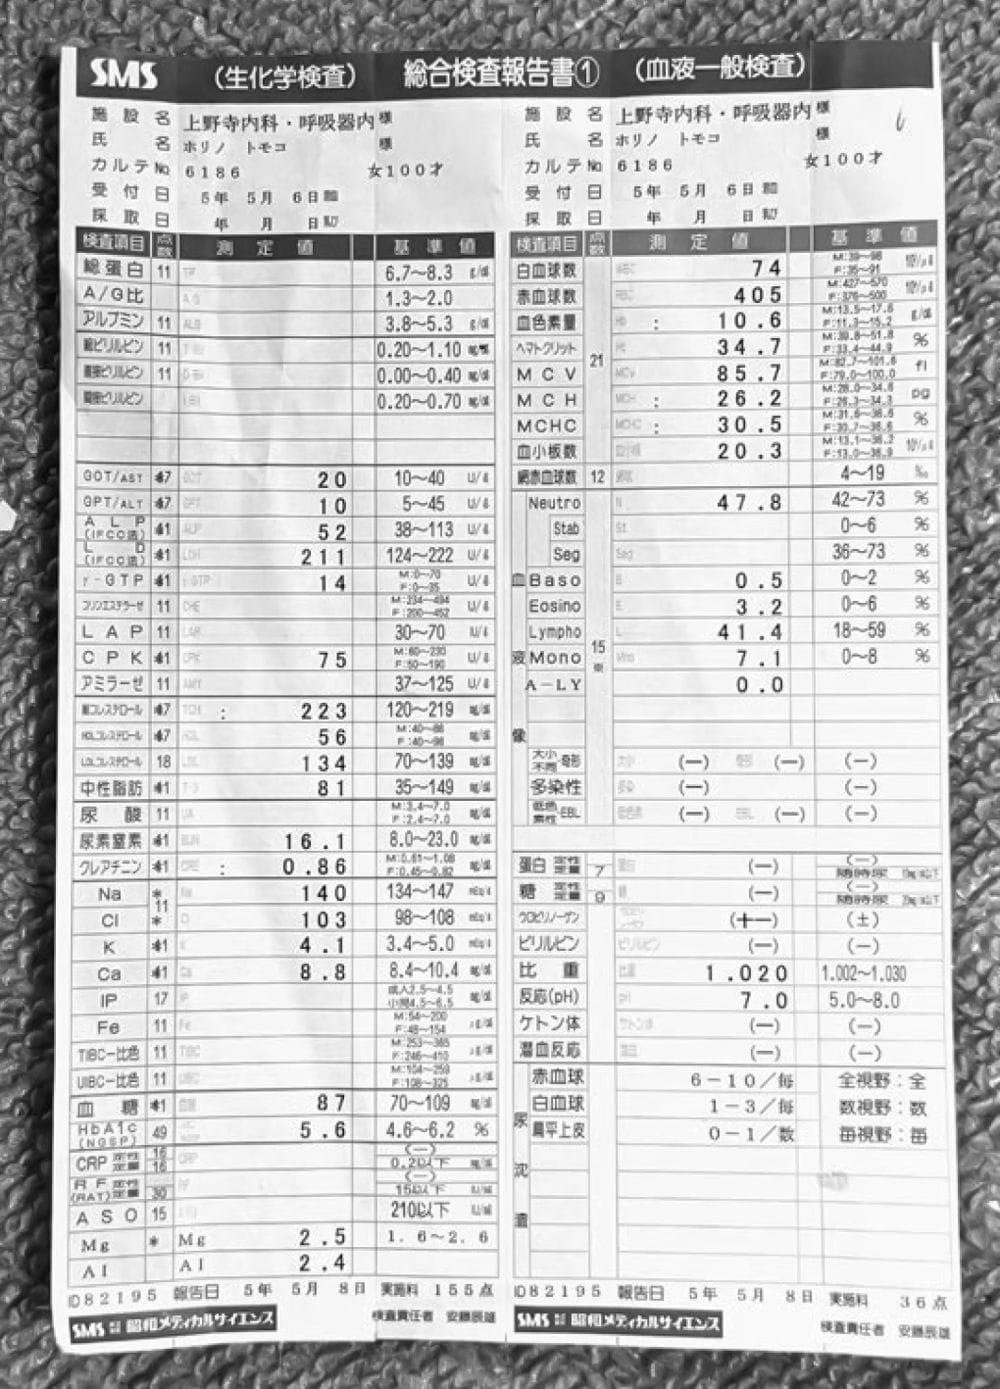 SMS (生化学検査) 総合検査報告書① (血液一般検査)
施設名 上野寺内科・呼吸器内 様
氏名 ホリノ トモコ 様
カルテNo. 6186 女100才
受付日 5年 5月 6日
採取日 年 月 日
検査項目 点数 測定値 基準値
総蛋白 11 TP 6.7〜8.3 g/dl
A/G比 A/G 1.3〜2.0
アルブミン 11 ALB 3.8〜5.3 g/dl
総ビリルビン 11 0.20〜1.10
直接ビリルビン 11 0.00〜0.40 mg/dl
間接ビリルビン 0.20〜0.70 mg/dl
GOT/AST *17 GOT 20 10〜40 U/ℓ
GPT/ALT *17 GPT 10 5〜45 U/ℓ
ALP (IFCC法) *11 ALP 52 38〜113 U/ℓ
L D (IFCC法) *11 LDH 211 124〜222 U/ℓ
γ-GTP *11 γ-GTP 14 M:0〜70 F:0〜35 U/ℓ
コリンエステラーゼ 11 CHE M:234〜494 F:200〜452 U/ℓ
LAP 11 LAP 30〜70 U/ℓ
CPK *11 CPK 75 M:60〜230 F:50〜190 U/ℓ
アミラーゼ 11 AMY 37〜125 U/ℓ
総コレステロール *17 TCH : 223 120〜219 mg/dl
HDLコレステロール *17 HDL 56 M:40〜86 F:40〜96 mg/dl
LDLコレステロール 18 LDL 134 70〜139 mg/dl
中性脂肪 *11 81 35〜149 mg/dl
尿酸 11 UA M:3.4〜7.0 F:2.4〜7.0 mg/dl
尿素窒素 *11 BUN 16.1 8.0〜23.0 mg/dl
クレアチニン *11 CRE : 0.86 M:0.61〜1.08 F:0.45〜0.82 mg/dl
Na * 11 Na 140 134〜147 mEq/ℓ
Cl * 103 98〜108 mEq/ℓ
K *11 K 4.1 3.4〜5.0 mEq/ℓ
Ca *11 Ca 8.8 8.4〜10.4 mg/dl
IP 17 IP 成人2.5〜4.5 小児4.5〜6.5 mg/dl
Fe 11 Fe M:54〜200 F:48〜154 μg/dl
TIBC-比色 11 TIBC M:253〜365 F:246〜410 μg/dl
UIBC-比色 11 UIBC M:104〜259 F:108〜325 μg/dl
血糖 *11 血糖 87 70〜109 mg/dl
HbA1c (NGSP) 49 5.6 4.6〜6.2 %
CRP 定性 定量 16 16 CRP (−) 0.2以下 mg/dl
RF (RAT) 定性 定量 30 RF (−) 15以下
ASO 15 210以下
Mg * Mg 2.5 1.6〜2.6
Al Al 2.4
ID82195 報告日 5年 5月 8日 実施料 155点
SMS 昭和メディカルサイエンス 検査責任者 安藤辰雄
施設名 上野寺内科・呼吸器内 様
氏名 ホリノ トモコ 様
カルテNo. 6186 女100才
受付日 5年 5月 6日
採取日 年 月 日
検査項目 点数 測定値 基準値
白血球数 WBC 74 M:39〜98 F:35〜91
赤血球数 RBC 405 M:427〜570 F:376〜500
血色素量 Hb : 10.6 M:13.5〜17.6 F:11.3〜15.2 g/dl
ヘマトクリット Ht 34.7 M:39.8〜51.8 F:33.4〜44.9 %
MCV 21 MCV 85.7 M:82.7〜101.6 F:79.0〜100.0 fl
MCH MCH : 26.2 M:28.0〜34.6 F:26.3〜34.3 pg
MCHC MCHC : 30.5 M:31.6〜36.6 F:30.7〜36.6 %
血小板数 血小板 20.3 M:13.1〜36.2 F:13.0〜36.9
網赤血球数 12 4〜19 ‰
血液像 15
Neutro N 47.8 42〜73 %
Stab St 0〜6 %
Seg Seg 36〜73 %
Baso B 0.5 0〜2 %
Eosino E 3.2 0〜6 %
Lympho L 41.4 18〜59 %
Mono Mno 7.1 0〜8 %
A-LY 0.0
大小不同・奇形 大小 (−) 奇形 (−) (−)
多染性 多染 (−) (−)
低色素性・EBL (−) EBL (−) (−)
蛋白 定性 定量 7 蛋白 (−) (−) 随時尿
糖 定性 定量 9 糖 (−) (−) 随時尿
ウロビリノーゲン ウロビリノーゲン (+−) (±)
ビリルビン ビリルビン (−) (−)
比重 比重 1.020 1.002〜1.030
反応(pH) pH 7.0 5.0〜8.0
ケトン体 ケトン体 (−) (−)
潜血反応 潜血 (−) (−)
尿沈渣
赤血球 6−10/毎 全視野:全
白血球 1−3/毎 数視野:数
扁平上皮 0−1/数 毎視野:毎
ID82195 報告日 5年 5月 8日 実施料 36点
SMS 昭和メディカルサイエンス 検査責任者 安藤辰雄